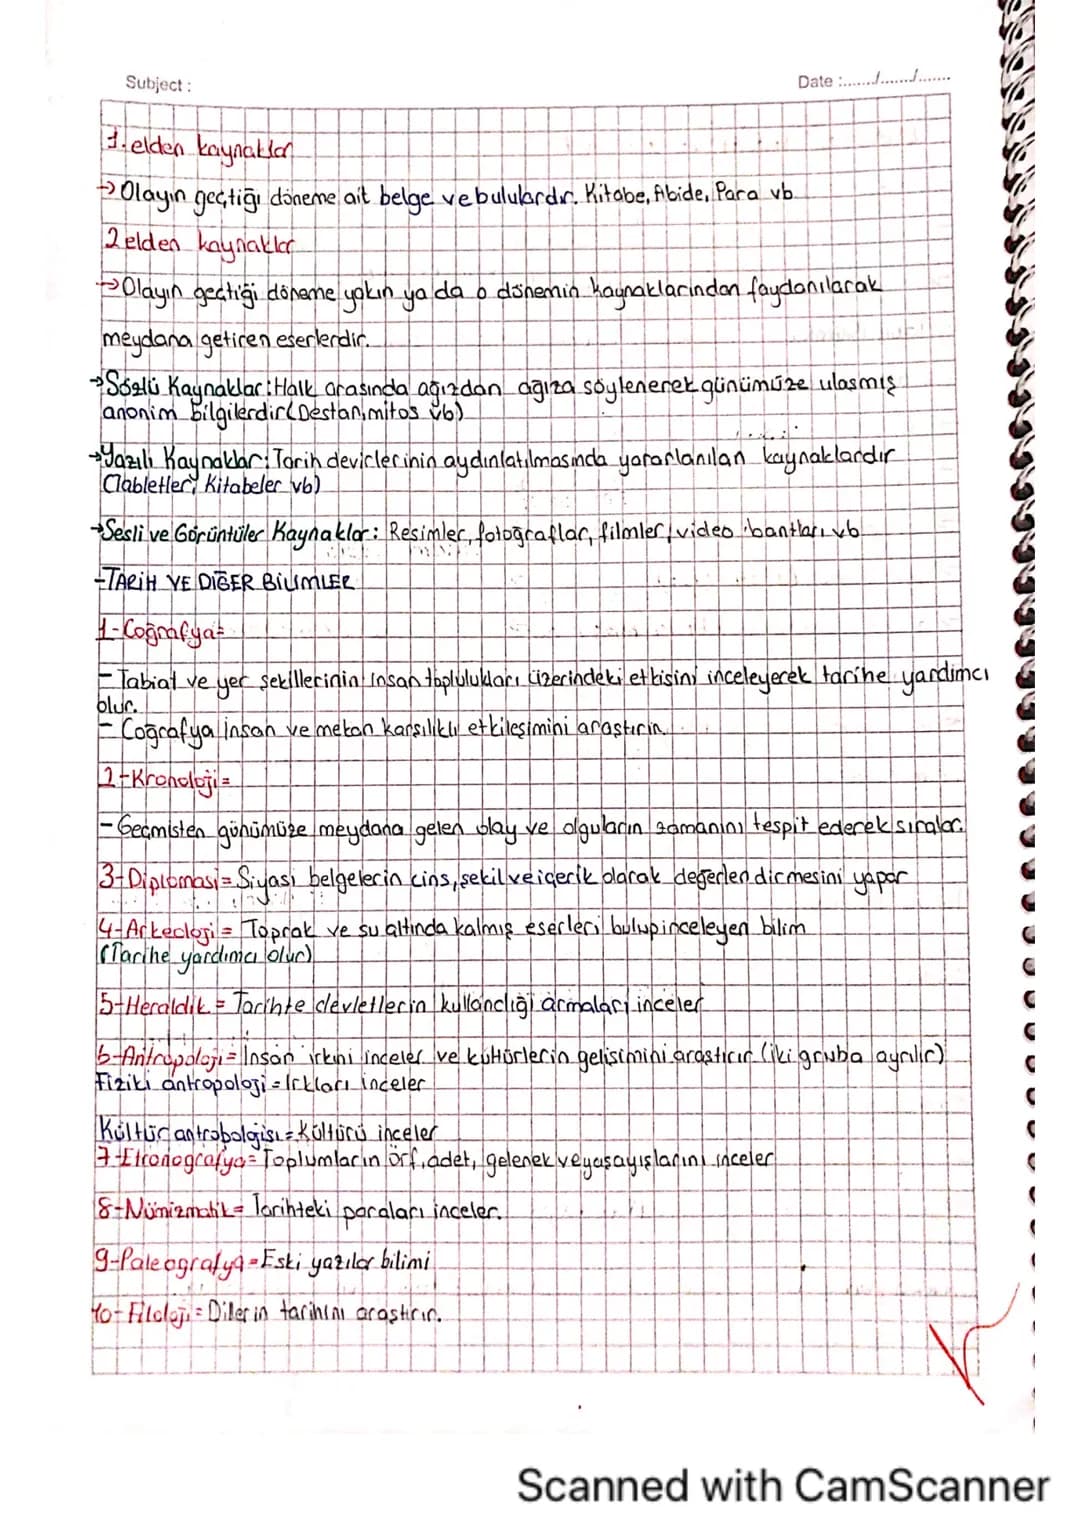 Subject :
Date :......./......./.......
1.elden kaynaklar
→Olayın geçtiği döneme ait belge ve bulularıdır. Kitabe, Abide, Para vb.
2 elden kaynaklar
→Olayın geçtiği döneme yakın ya da o dönemin kaynaklarından faydanılarak
meydana getiren eserlerdir.
→Sözlü Kaynaklar: Halk arasında ağızdan ağıza söylenerek günümüze ulaşmış
anonim bilgilerdir(Destan, mitos vb)
→Yazılı Kaynaklar: Tarih devirlerinin aydınlatılmasında yararlanılan kaynaklardır
(Tabletler, Kitabeler vb)
→Sesli ve Görüntüler Kaynaklar: Resimler, fotoğraflar, filmler, video bantları vb.
-TARİH VE DİĞER BİLİMLER
1-Coğrafya=
- Tabiat ve yer şekillerinin insan toplulukları üzerindeki etkisini inceleyerek tarihe yardımcı
olur.
- Coğrafya insan ve mekan karşılıklı etkileşimini araştırır.
2-Kronoloji=
-Geçmişten günümüze meydana gelen olay ve olguların zamanını tespit ederek sıralar.
3-Diplomasi= Siyasi belgelerin cins, şekil ve içerik olarak değerlendirmesini yapar
4-Arkeoloji= Toprak ve su altında kalmış eserleri bulup inceleyen bilim
(Tarihe yardımcı olur)
5-Heraldik = Tarihte devletlerin kullandığı armaları inceler
6-Antropoloji= İnsan ırkını inceler ve kültürlerin gelişimini araştırır (iki gruba ayrılır)
Fiziki antropoloji = Irkları inceler
Kültür antrobolgisi = Kültürü inceler
7-Etnografya= Toplumların örf, adet, gelenek ve yaşayışlarını inceler
8-Nümizmatik= Tarihteki paraları inceler.
9-Paleografya=Eski yazılar bilimi
10-Filoloji= Dilerin tarihini araştırır.
Scanned with CamScanner